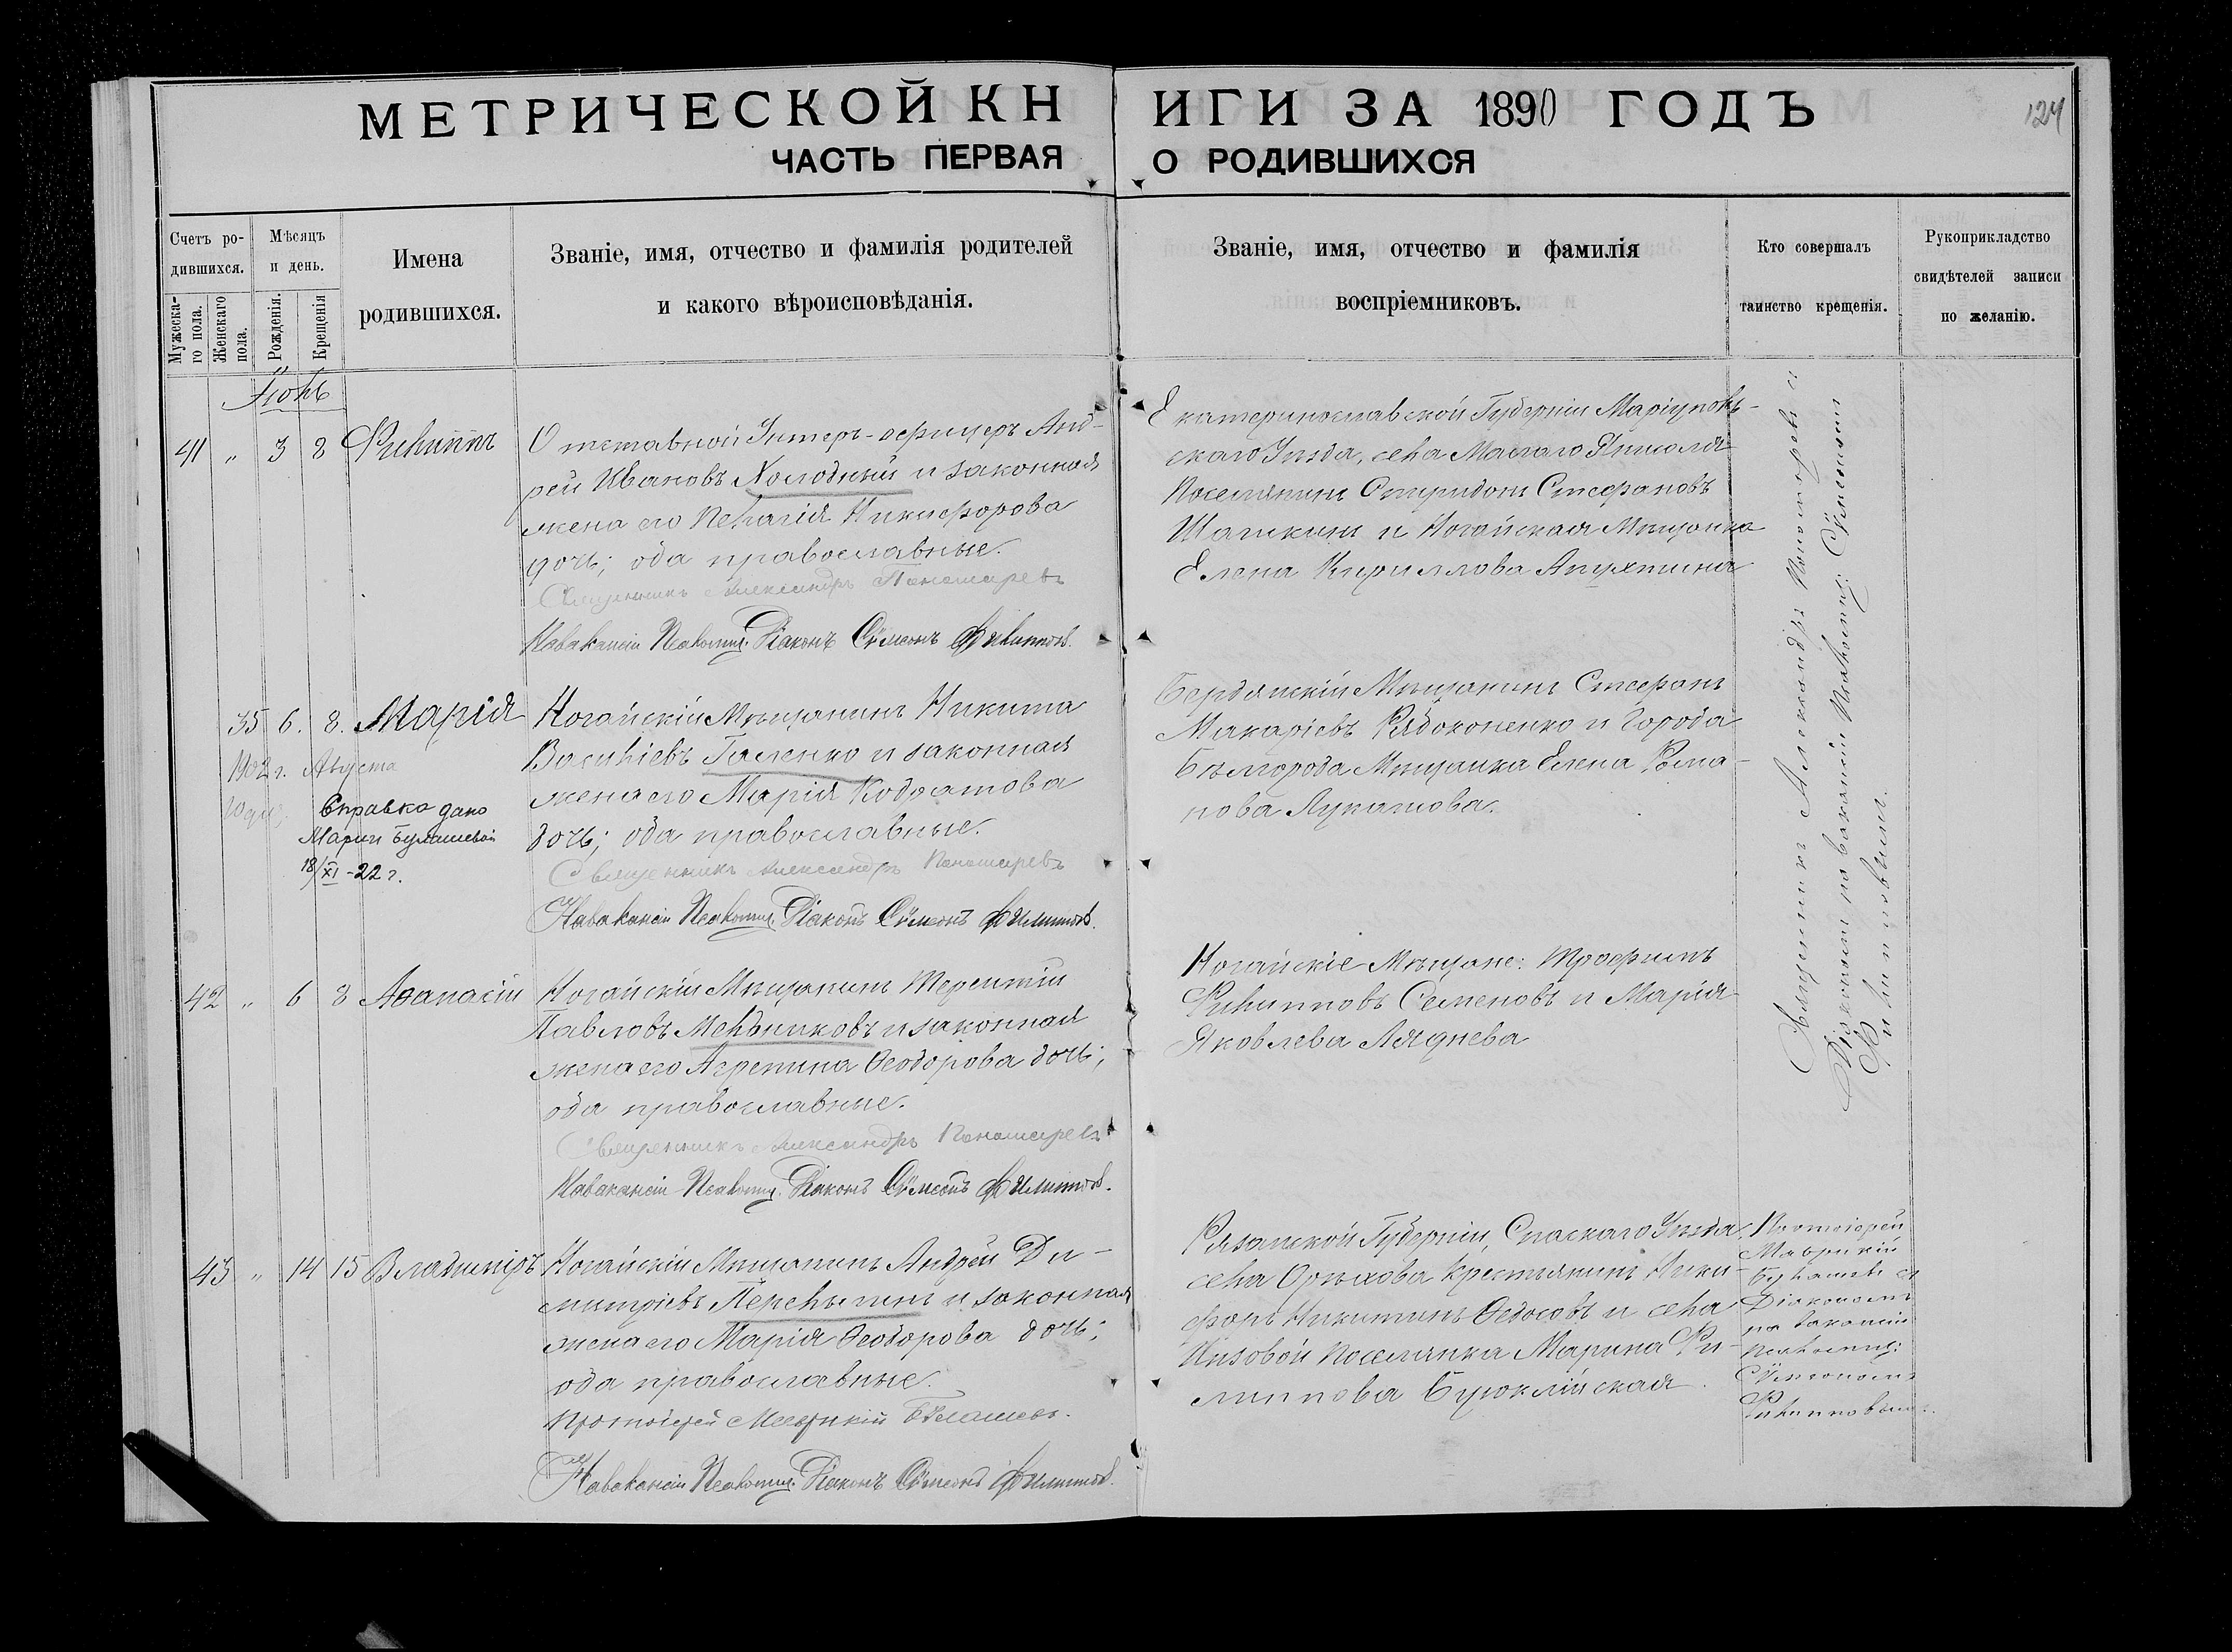 МЕТРИЧЕСКОЙ КНИГИ ЗА 1890 ГОДЪ
124
ЧАСТЬ ПЕРВАЯ О РОДИВШИХСЯ
Счетъ ро-
дившихся.
Мужеска-
го пола.
Женскаго
пола.
Мѣсяцъ
и день.
Рожденія.
Крещенія
Имена
родившихся.
Званіе, имя, отчество и фамилія родителей
и какого вѣроисповѣданія.
Званіе, имя, отчество и фамилія
воспріемниковъ.
Кто совершалъ
таинство крещенія.
Рукоприкладство
свидѣтелей записи
по желанію.
Іюнь
41 " 3 8 Филиппъ
Отставной Унтеръ-офицеръ Анд-
рей Ивановъ Холодный и законная
жена его Пелагія Никифорова
дочь; оба православные.
Священникъ Александръ Пономаревъ
На вакансіи Псаломщ. Діаконъ Сѵмеонъ Филипповъ.
Екатеринославской Губерніи Маріуполь-
скаго Уѣзда, села Малаго Янисоля
Поселянинъ Спиридонъ Стефановъ
и Ногайская Мѣщанка
Елена Кириллова Апухтина
35 6. 8. Марія
1902 г. Августа
Справка дана
Марии Булашевой
18/XI-22 г.
Ногайскій Мѣщанинъ Никита
Васильевъ Галенко и законная
жена его Марія Кодратова
дочь; оба православные.
Священникъ Александръ Пономаревъ
На вакансіи Псаломщ. Діаконъ Сѵмеонъ Филипповъ.
Бердянскій Мѣщанинъ Стефанъ
Макаріевъ Рябоконенко и Города
Бѣлгорода Мѣщанка Елена Рома-
нова Лукашова.
42 " 6 8 Аѳанасій
Ногайскій Мѣщанинъ Терентій
Павловъ Мельниковъ и законная
жена его Агрепина Ѳеодорова дочь;
оба православные.
Священникъ Александръ Пономаревъ
На вакансіи Псаломщ. Діаконъ Сѵмеонъ Филипповъ.
Ногайскіе Мѣщане: Трофимъ
Филипповъ Семеновъ и Марія
Яковлева Ляднева
Священникъ Александръ Пономаревъ съ
Діакономъ на вакансіи Псаломщ: Сѵмеономъ
Филипповымъ.
43 " 14 15 Владиміръ
Ногайскій Мѣщанинъ Андрей Ди-
митріевъ Перелыгинъ и законная
жена его Марія Ѳеодорова дочь;
оба православные.
Протоіерей Маврикій Булашевъ.
На вакансіи Псаломщ. Діаконъ Сѵмеонъ Филипповъ.
Рязанской Губерніи, Спаскаго Уѣзда
села Орѣхова Крестьянинъ Ники-
форъ Никитинъ Ѳедосовъ и села
Низовой Поселянка Марина Фи-
липова Буюклійская.
Протоіерей
Маврикій
Булашевъ съ
Діакономъ
на вакансіи
Псаломщ:
Сѵмеономъ
Филипповымъ.